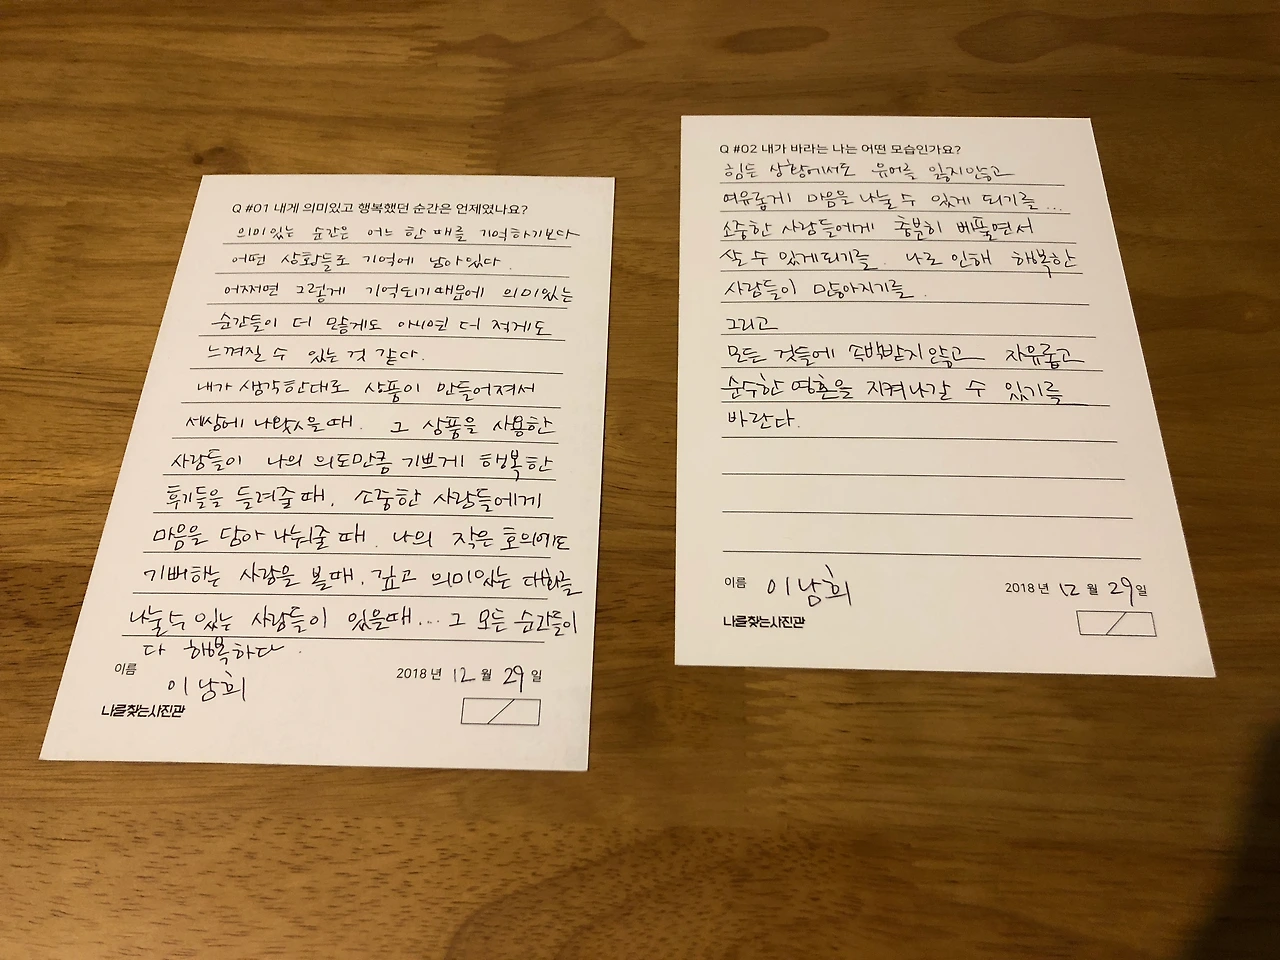 Q #01 내게 의미있고 행복했던 순간은 언제였나요?
의미있는 순간은 어느 한 때를 기억하기보다
어떤 상황들로 기억에 남아있다.
어쩌면 그렇게 기억되기때문에 의미있는
순간들이 더 많게도 아니면 더 적게도
느껴질 수 있는 것 같다.
내가 생각한대로 상품이 만들어져서
세상에 나왔을때. 그 상품을 사용한
사람들이 나의 의도만큼 기쁘게 행복한
후기들을 들려줄때, 소중한 사람들에게
마음을 담아 나눠줄 때. 나의 작은 호의에도
기뻐하는 사람을 볼때, 깊고 의미있는 대화를
나눌수 있는 사람들이 있을때... 그 모든 순간들이
다 행복하다.
이름 이남희
2018 년 12 월 29 일
나를찾는사진관
Q #02 내가 바라는 나는 어떤 모습인가요?
힘든 상황에서도 유머를 잃지않고
여유롭게 마음을 나눌 수 있게 되기를...
소중한 사람들에게 충분히 베풀면서
살 수 있게되기를. 나로 인해 행복한
사람들이 많아지기를.
그리고
모든 것들에 속박받지 않고 자유롭고
순수한 영혼을 지켜나갈 수 있기를
바란다.
이름 이남희
2018 년 12 월 29 일
나를찾는사진관